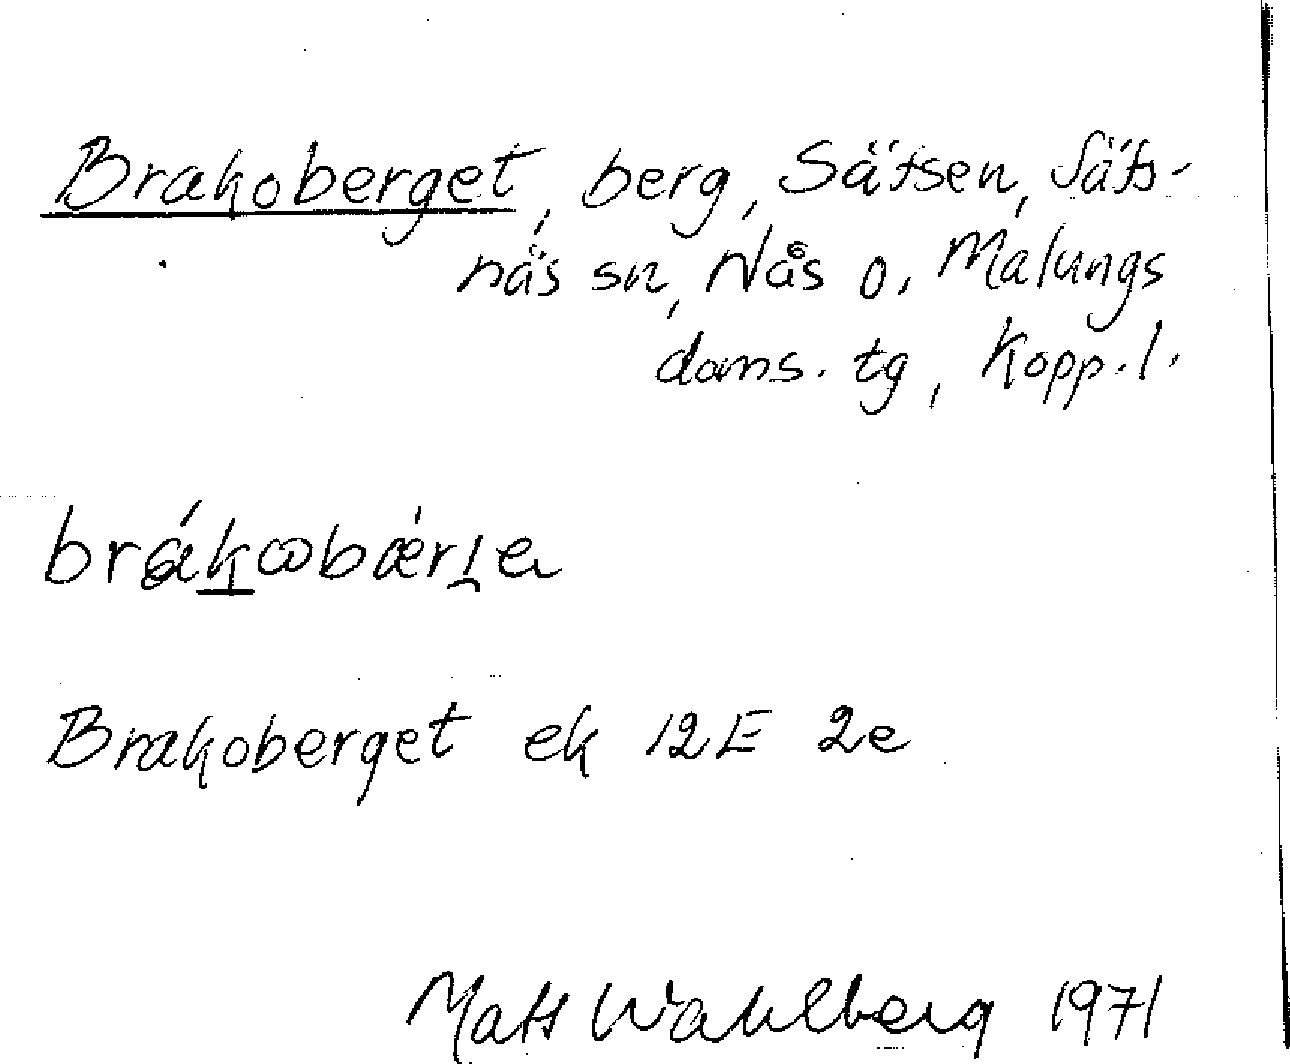 Brakoberget, berg, Sätsen, Säfs-
näs sn, Nås o. Malungs
doms. tg, Kopp. l.
Brakoberget ek 12E 2e
Mats Wahlberg 1971